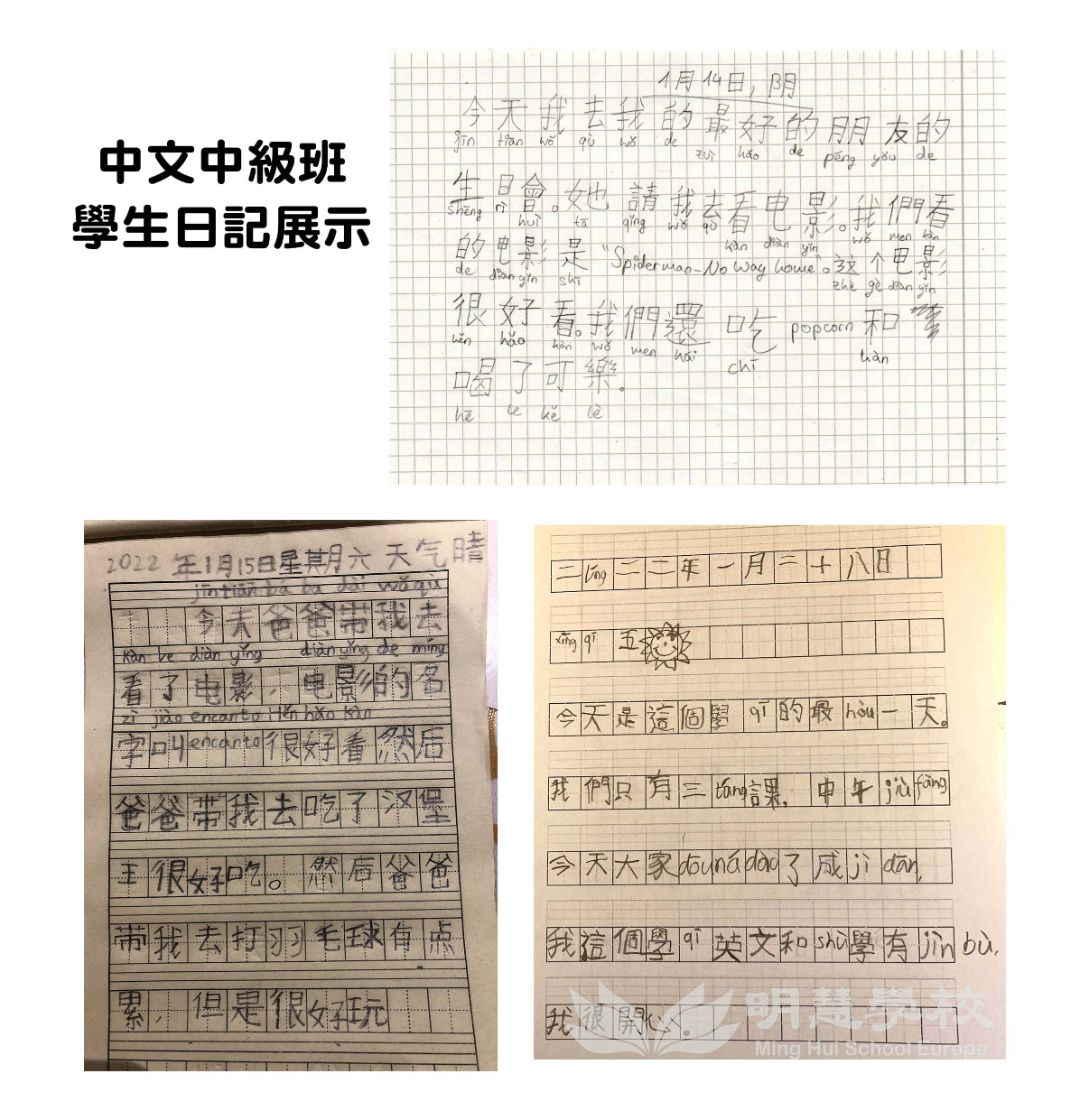 中文中級班
學生日記展示
1月14日，阴
今天我去我的最好的朋友的
jīn tiān wǒ qù wǒ de zuì hǎo de péng yǒu de
生日會。她請我去看电影。我們看
shēng rì huì tā qǐng wǒ qù kàn diàn yǐng wǒ men kàn
的电影是 "Spiderman-No Way home"。這个电影
de diàn yǐng shì zhè gè diàn yǐng
很好看。我們還 吃 popcorn 和
hěn hǎo kàn wǒ men hái chī hàn
喝了可樂。
hē le kě lè
2022 年1月15日星期六 天气晴
jīn tiān bà ba dài wǒ qù
今天爸爸带我去
kàn le diàn yǐng diàn yǐng de míng
看了电影，电影的名
zì jiào encanto Hěn hǎo kàn
字叫encanto很好看然后
爸爸带我去吃了汉堡
王很好吃。然后爸爸
带我去打羽毛球有点
累，但是很好玩
二líng二二年一月二十八日
xīng qī 五
今天是這個學qī的最hòu一天。
我們只有三táng課，中午jiùfàng
今天大家dōunádào了成jìdān，
我這個學qī英文和shù學有jìnbù，
我很開心。
明慧學校
Ming Hui School Europe